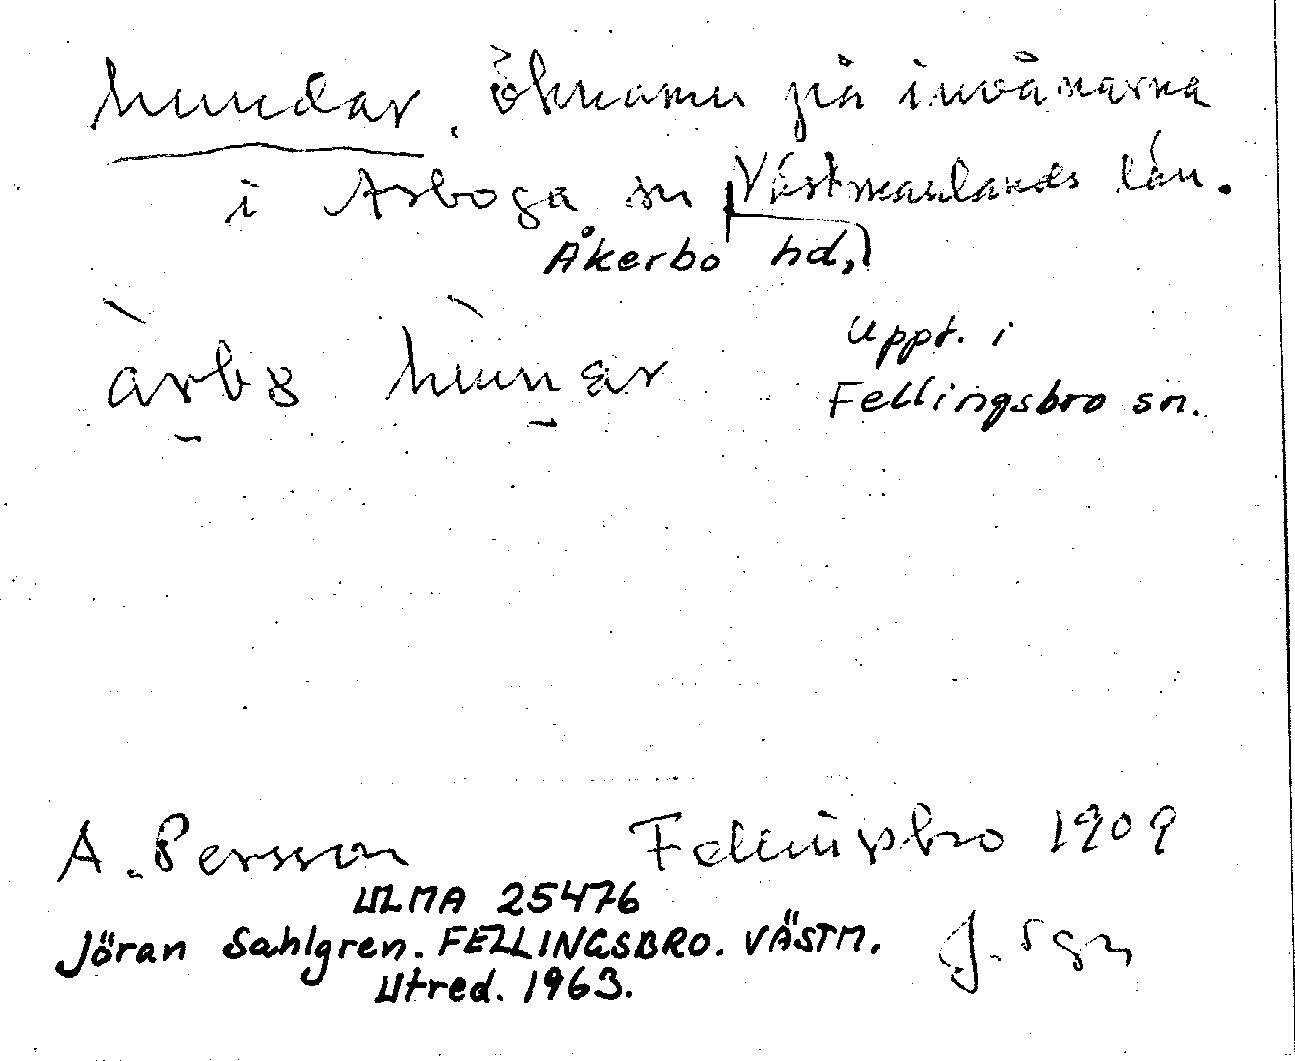 hundar. öknamn på invånarna
i Arboga sn Västmanlands län.
Åkerbo hd,
àrbo hùnar
uppt. i
Fellingsbro sn.
A. Persson Fellingsbro 1909
ULMA 25476
Jöran Sahlgren. FELLINGSBRO. VÄSTM. J. Sgn
Utred. 1963.